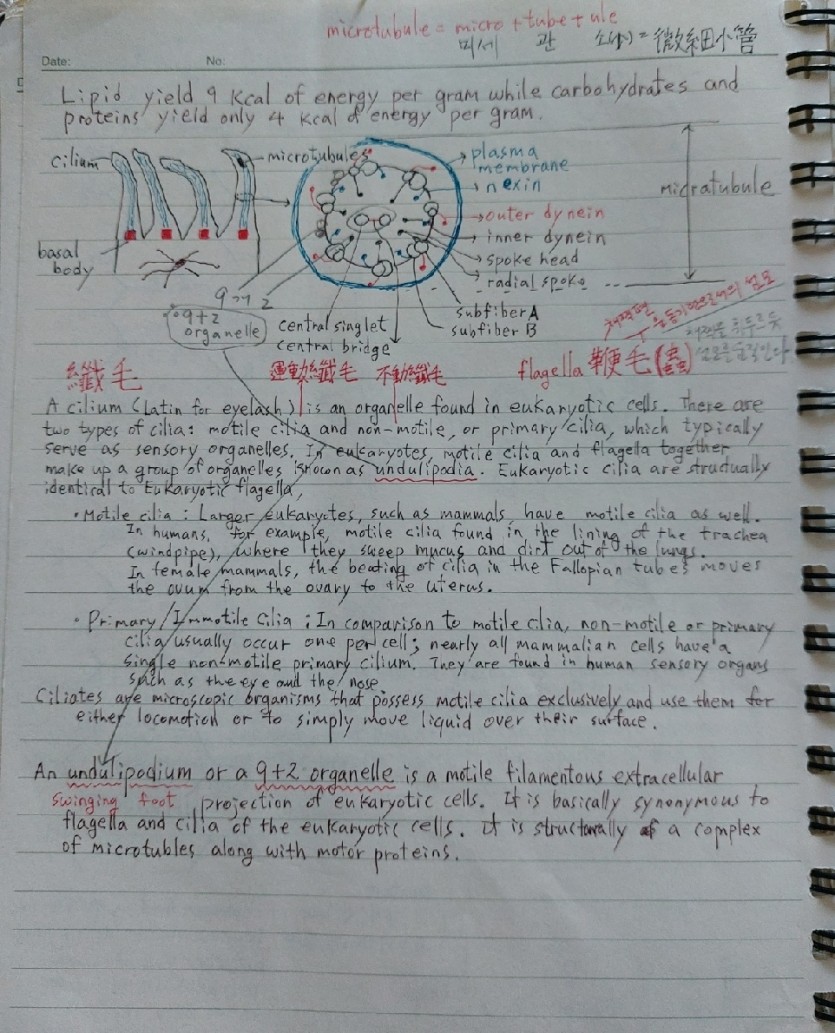 microtubule = micro + tube + ule
미세 관 소(小) = 微細小管
Date: No:
Lipid yield 9 Kcal of energy per gram while carbohydrates and
proteins yield only 4 kcal of energy per gram.
cilium
microtubules
basal
body
plasma
membrane
nexin
outer dynein
inner dynein
spoke head
radial spoke
subfiber A
subfiber B
central singlet
central bridge
micratubule
9+2
organelle
纖毛
運動纖毛 不動纖毛
flagella 鞭毛(蟲)
A cilium (Latin for eyelash) is an organelle found in eukaryotic cells. There are
two types of cilia: motile cilia and non-motile, or primary cilia, which typically
serve as sensory organelles. In eukaryotes, motile cilia and flagella together
make up a group of organelles known as undulipodia. Eukaryotic cilia are strudually
identical to Eukaryotic flagella,
• Motile cilia : Larger eukaryotes, such as mammals have motile cilia as well.
In humans, for example, motile cilia found in the lining of the trachea
(windpipe), where they sweep mucus and dirt out of the lungs.
In female mammals, the beating of cilia in the Fallopian tubes moves
the ovum from the ovary to the uterus.
• Primary/Immotile Cilia : In comparison to motile cilia, non-motile or primary
cilia usually occur one per cell; nearly all mammalian cells have a
single non-motile primary cilium. They are found in human sensory organs
such as the eye and the nose
Ciliates are microscopic organisms that possess motile cilia exclusively and use them for
either locomotion or to simply move liquid over their surface.
An undulipodium or a 9+2 organelle is a motile filamentous extracellular
swinging foot projection of eukaryotic cells. It is basically synonymous to
flagella and cilia of the eukaryotic cells. it is structurally of a complex
of microtubles along with motor proteins.